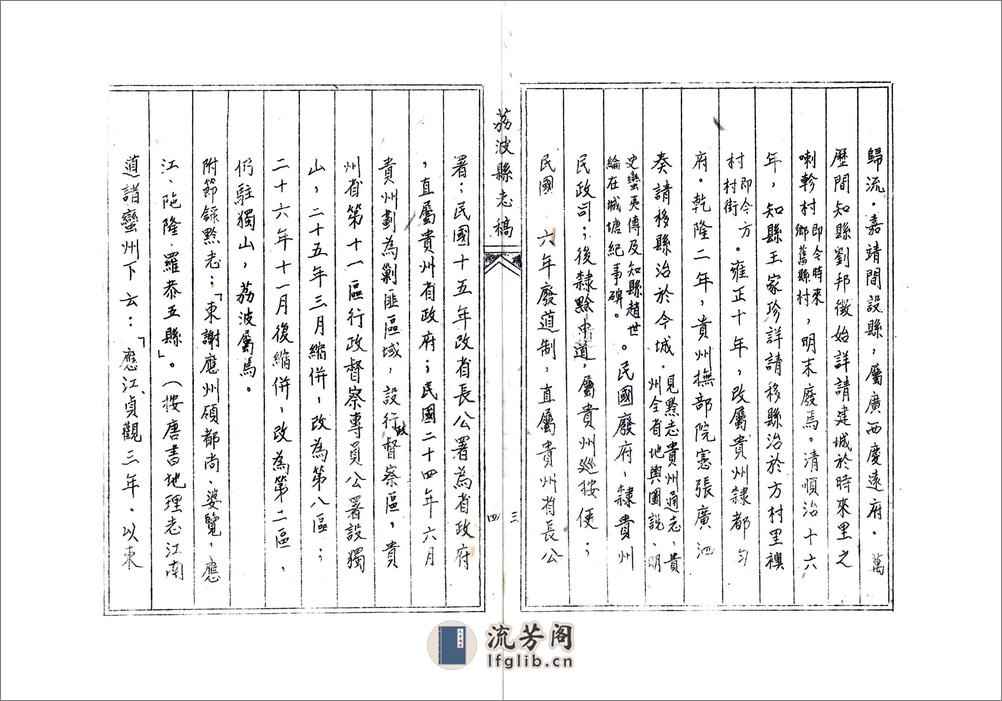 歸流。嘉靖間設縣，屬廣西慶遠府。萬
歷間知縣劉邦徵始詳請建城於時來里之
喇軫村即今時來鄉舊縣村，明末廢焉。清順治十六
年，知縣王家珍詳請移縣治於方村里襖
村即今方村街。雍正十年，改屬貴州隸都勻
府。乾隆二年，貴州撫部院憲張廣泗
奏請移縣治於今城．見黔志貴州通志，貴州全省地輿圖說，明
史蠻夷傳及知縣趙世綸在城塘紀事碑。民國廢府，隸貴州
民政司；後隸黔中道，屬貴州巡按使；
民國六年廢道制，直屬貴州省長公
三
荔波縣志稿
四
署；民國十五年改省長公署為省政府
，直屬貴州省政府；民國二十四年六月
貴州劃為剿匪區域，設行政督察區，貴
州省第十一區行政督察專員公署設獨
山，二十五年三月縮併，改為第八區；
二十六年十一月後縮併，改為第二區，
仍駐獨山，荔波屬焉。
附節錄黔志：「東謝應州領都尚、婆覽，應
江、陁隆、羅恭五縣」。（按唐書地理志江南
道諸蠻州下云：「應江、貞觀三年、以東
流芳阁
lfglib.cn